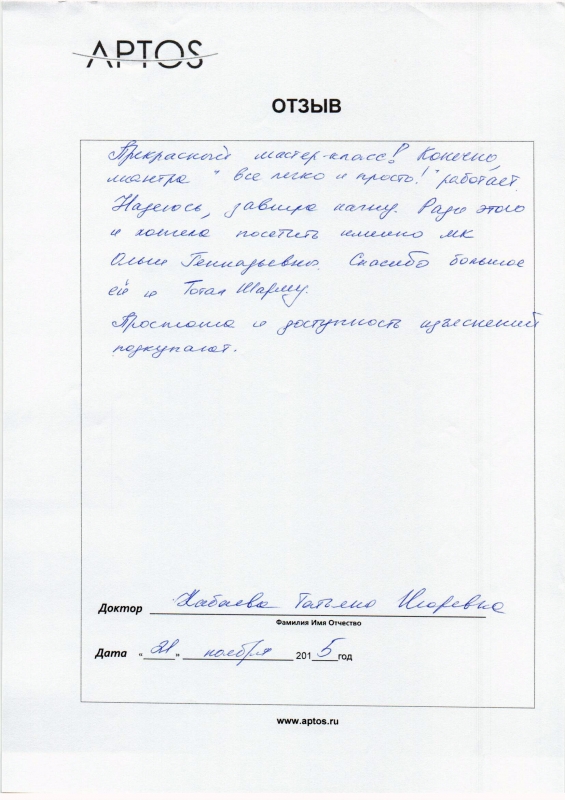 APTOS
ОТЗЫВ
Прекрасный мастер-класс! Конечно,
мантра "все легко и просто!" работает.
Надеюсь, завтра начну. Ради этого
и хотела посетить именно мк
Ольги Геннадьевны. Спасибо большое
ей и Тотал Шарму.
Простота и доступность изъяснений
подкупают.
Доктор Хабаева Татьяна Игоревна
Фамилия Имя Отчество
Дата "21" ноября 2015 год
www.aptos.ru